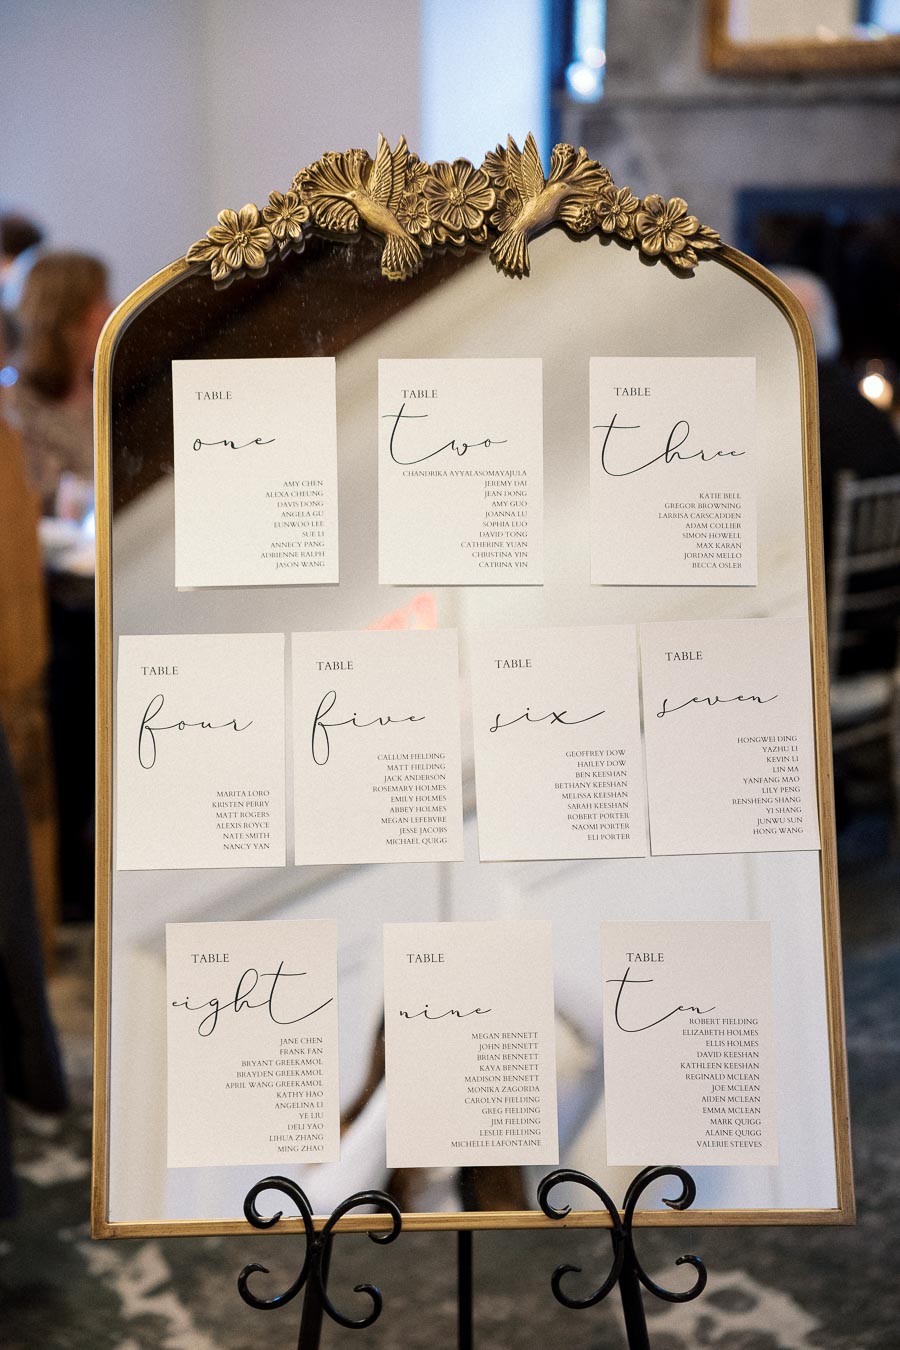 TABLE
one
AMY CHEN
ALEXA CHEUNG
DAVIS DONG
ANGELA GU
EUNWOO LEE
SUE LI
ANNECY PANG
ADRIENNE RALPH
JASON WANG
TABLE
two
CHANDRIKA AYYALASOMAYAJULA
JEREMY DAI
JEAN DONG
AMY GUO
JOANNA LU
SOPHIA LUO
DAVID TONG
CATHERINE YUAN
CHRISTINA YIN
CATRINA YIN
TABLE
three
KATIE BELL
GREGOR BROWNING
LARRISA CARSCADDEN
ADAM COLLIER
SIMON HOWELL
MAX KARAN
JORDAN MELLO
BECCA OSLER
TABLE
four
MARITA LORO
KRISTEN PERRY
MATT ROGERS
ALEXIS ROYCE
NATE SMITH
NANCY YAN
TABLE
five
CALLUM FIELDING
MATT FIELDING
JACK ANDERSON
ROSEMARY HOLMES
EMILY HOLMES
ABBEY HOLMES
MEGAN LEFEBVRE
JESSE JACOBS
MICHAEL QUIGG
TABLE
six
GEOFFREY DOW
HAILEY DOW
BEN KEESHAN
BETHANY KEESHAN
MELISSA KEESHAN
SARAH KEESHAN
ROBERT PORTER
NAOMI PORTER
ELI PORTER
TABLE
seven
HONGWEI DING
YAZHU LI
KEVIN LI
LIN MA
YANFANG MAO
LILY PENG
RENSHENG SHANG
YI SHANG
JUNWU SUN
HONG WANG
TABLE
eight
JANE CHEN
FRANK FAN
BRYANT GREEKAMOL
BRAYDEN GREEKAMOL
APRIL WANG GREEKAMOL
KATHY HAO
ANGELINA LI
YE LIU
DELI YAO
LIHUA ZHANG
MING ZHAO
TABLE
nine
MEGAN BENNETT
JOHN BENNETT
BRIAN BENNETT
KAYA BENNETT
MADISON BENNETT
MONIKA ZAGORDA
CAROLYN FIELDING
GREG FIELDING
JIM FIELDING
LESLIE FIELDING
MICHELLE LAFONTAINE
TABLE
ten
ROBERT FIELDING
ELIZABETH HOLMES
ELLIS HOLMES
DAVID KEESHAN
KATHLEEN KEESHAN
REGINALD MCLEAN
JOE MCLEAN
AIDEN MCLEAN
EMMA MCLEAN
MARK QUIGG
ALAINE QUIGG
VALERIE STEEVES